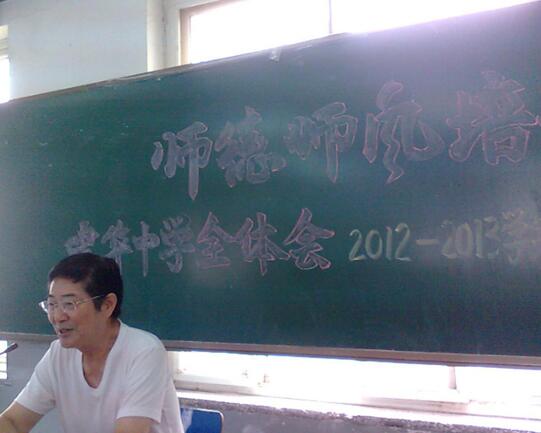 师德师风培
中华中学全体会 2012-2013学